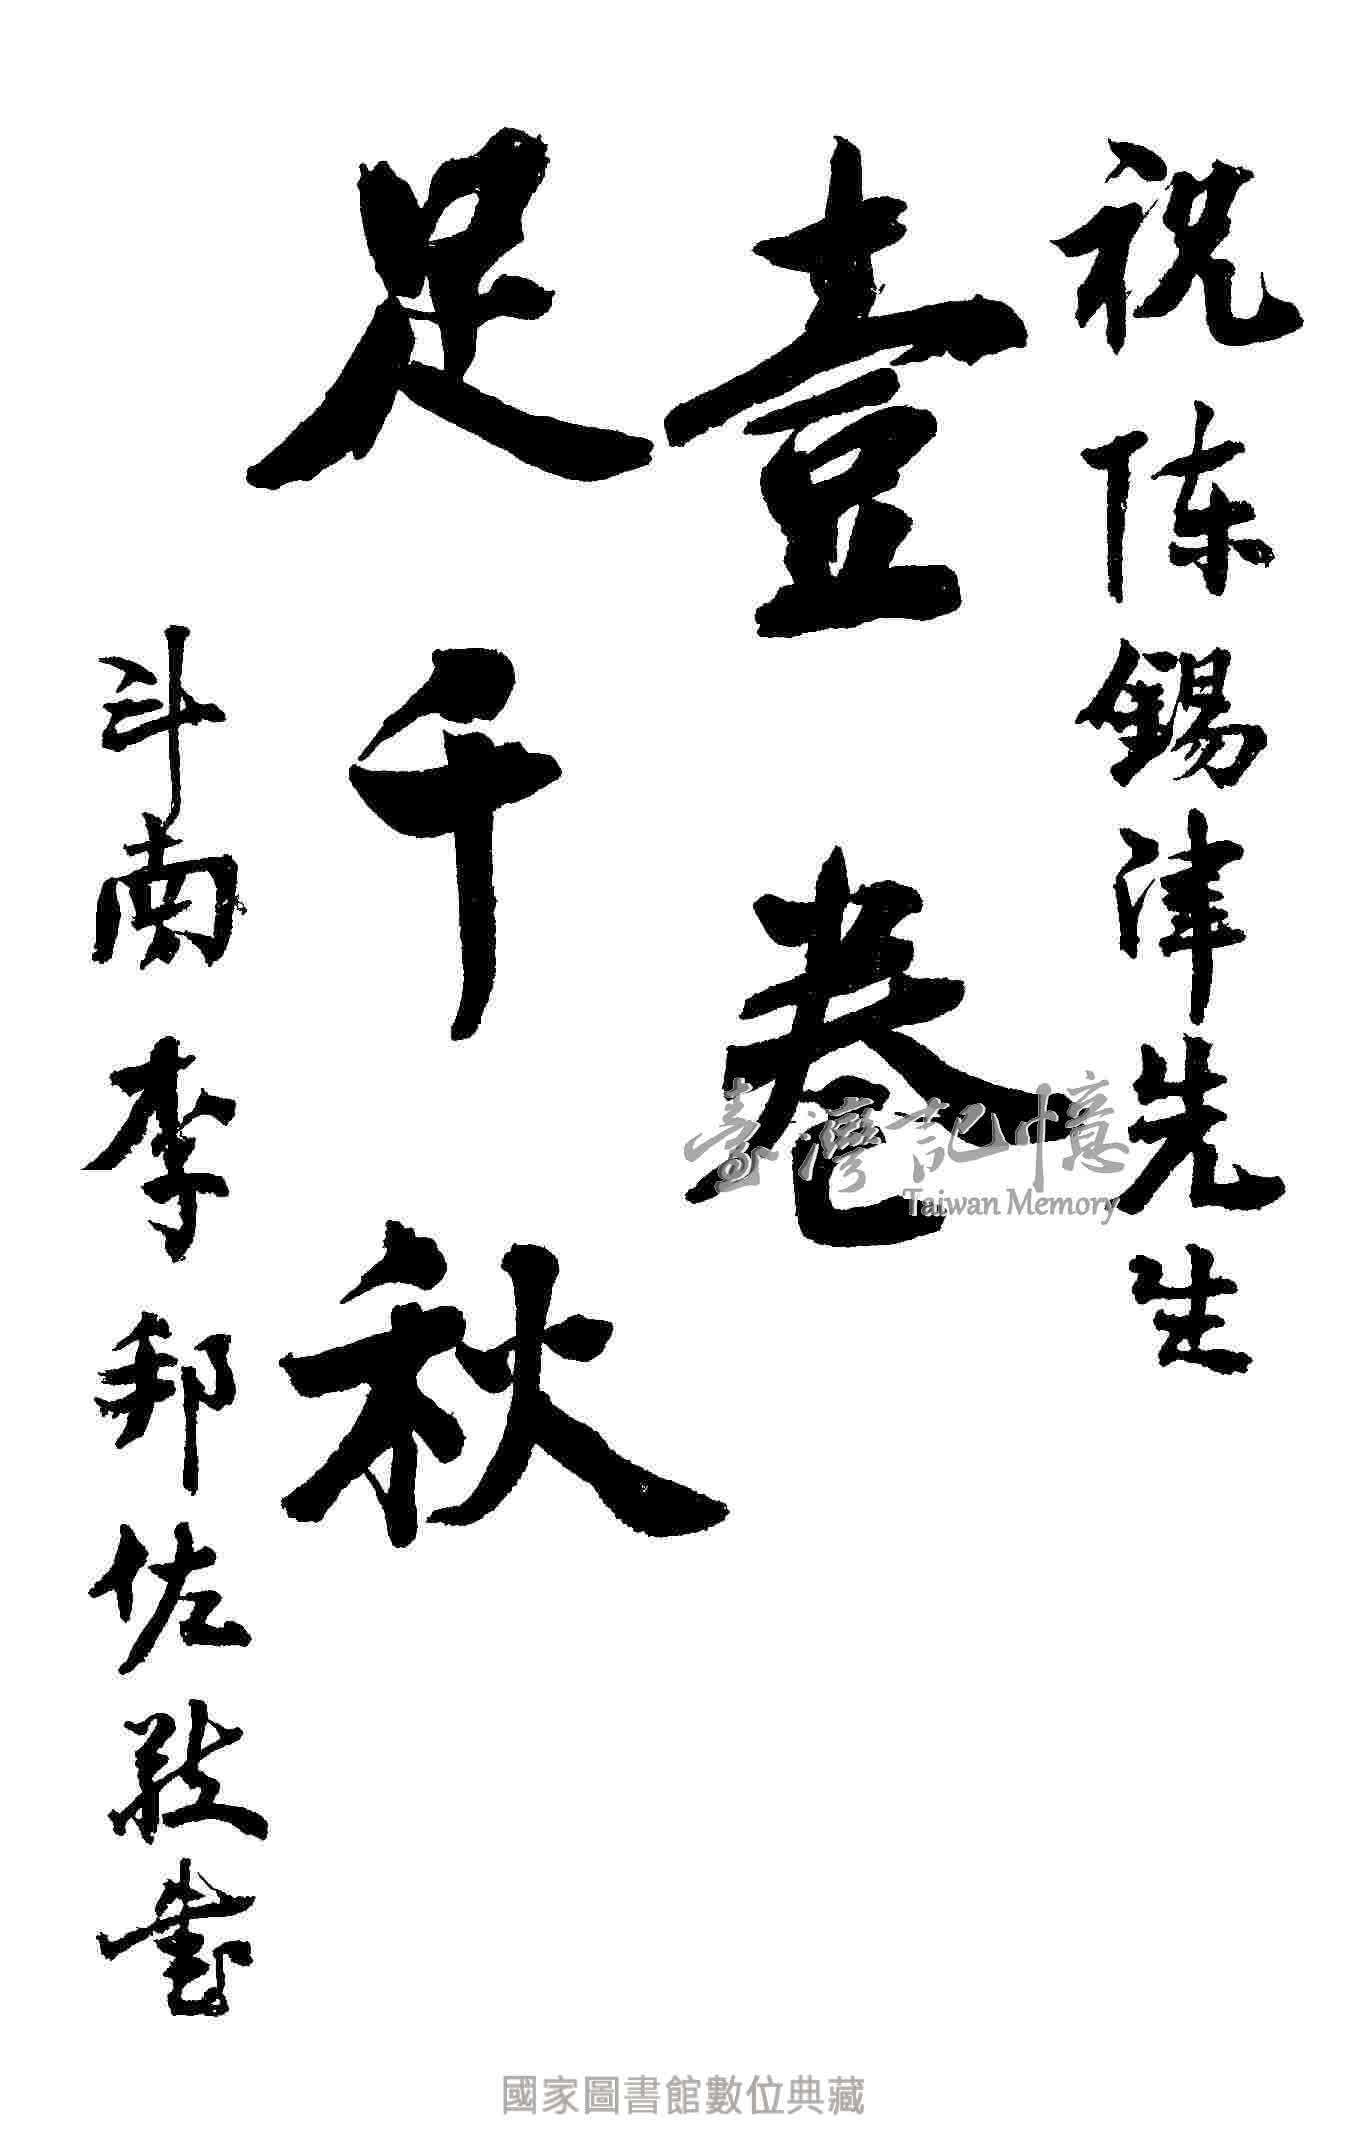 祝陳錫津先生
壹卷
足千秋
斗南李邦佐敬書
臺灣記憶
Taiwan Memory
國家圖書館數位典藏